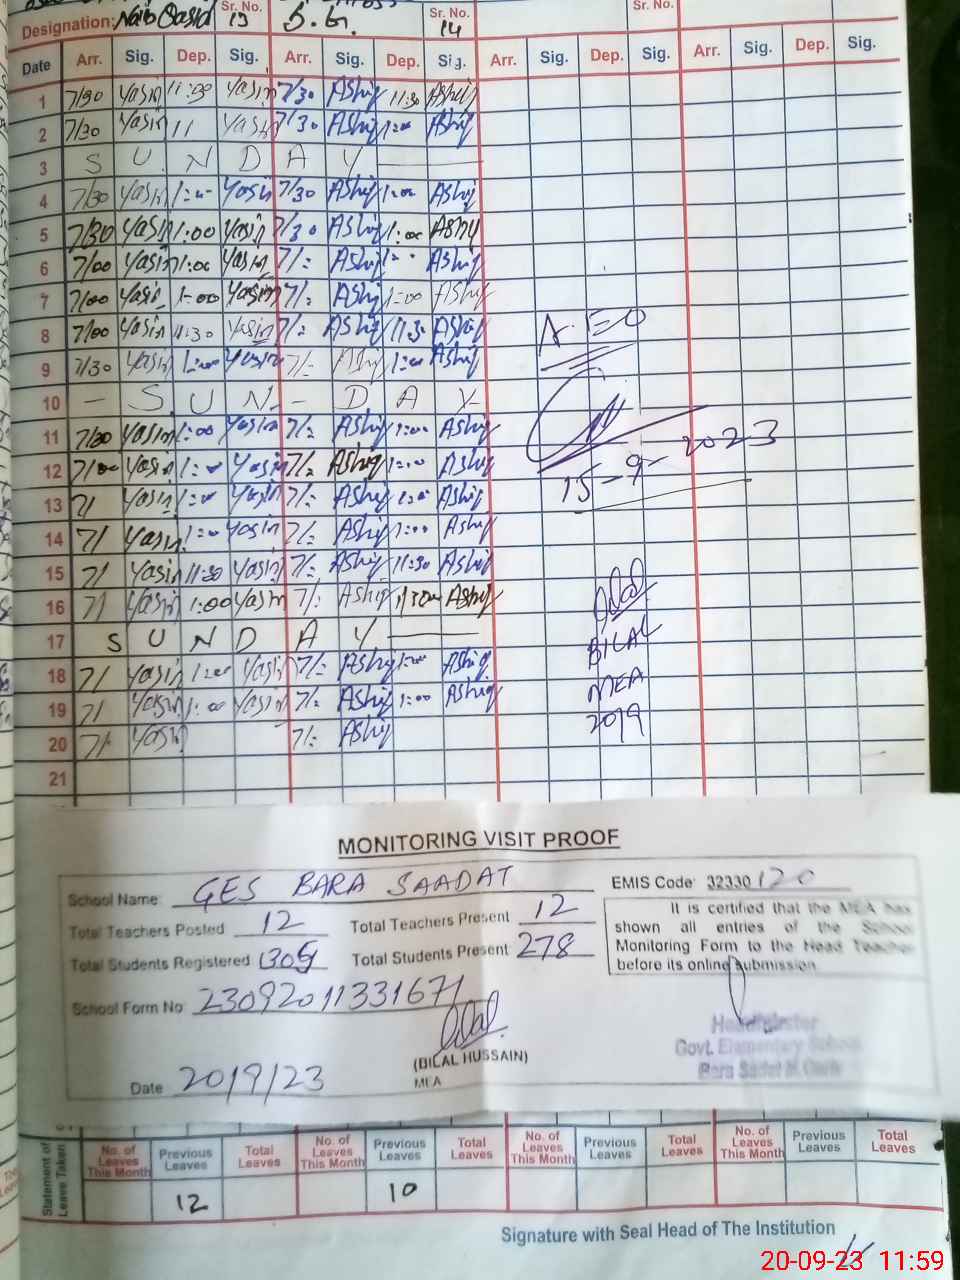 Designation: Naib Qasid Sr. No. 13 S.G. Sr. No. 14 Sr. No.
Date Arr. Sig. Dep. Sig. Arr. Sig. Dep. Sig. Arr. Sig. Dep. Sig. Arr. Sig. Dep. Sig.
1 7/30 Yasin 11:30 Yasin 7/30 Ashiq 11:30 Ashiq
2 7/30 Yasin 11 Yasin 7/30 Ashiq 1:00 Ashiq
3 S U N D A Y
4 7/30 Yasin 1:00 Yasin 7/30 Ashiq 1:00 Ashiq
5 7/30 Yasin 1:00 Yasin 7/30 Ashiq 1:00 Ashiq
6 7/00 Yasin 1:00 Yasin 7/: Ashiq Ashiq
7 7/00 Yasin 1:00 Yasin 7/: Ashiq 1:00 Ashiq
8 7/00 Yasin 11:30 Yasin 7/: Ashiq 11:30 Ashiq
A.E.O
9 7/30 Yasin 1:00 Yasin 7/: Ashiq 1:00 Ashiq
10 - S U N - D A Y
11 7/00 Yasin 1:00 Yasin 7/: Ashiq 1:00 Ashiq
15-9-2023
12 7/00 Yasin 1:00 Yasin 7/: Ashiq 1:00 Ashiq
13 7/ Yasin 1:00 Yasin 7/: Ashiq 1:00 Ashiq
14 7/ Yasin 1:00 Yasin 7/: Ashiq 1:00 Ashiq
15 7/ Yasin 11:30 Yasin 7/: Ashiq 11:30 Ashiq
16 7/ Yasin 1:00 Yasin 7/: Ashiq Ashiq
17 S U N D A Y
BILAL
18 7/ Yasin 1:00 Yasin 7/: Ashiq 1:00 Ashiq
MEA
19 7/ Yasin 1:00 Yasin 7/: Ashiq 1:00 Ashiq
20/9
20 7/ Yasin 7/: Ashiq
21
MONITORING VISIT PROOF
School Name: GES BARA SAADAT EMIS Code: 32330120
Total Teachers Posted 12 Total Teachers Present 12
Total Students Registered 305 Total Students Present 278
It is certified that the MEA has
shown all entries of the School
Monitoring Form to the Head Teacher
before its online submission.
School Form No: 23092011331671
Bilal
(BILAL HUSSAIN)
MEA
Headmaster
Govt. Elementary School
Bara Sadat
Date 20/9/23
Statement of Leave Taken
No. of Leaves This Month Previous Leaves Total Leaves No. of Leaves This Month Previous Leaves Total Leaves No. of Leaves This Month Previous Leaves Total Leaves No. of Leaves This Month Previous Leaves Total Leaves
12 10
Signature with Seal Head of The Institution
20-09-23 11:59